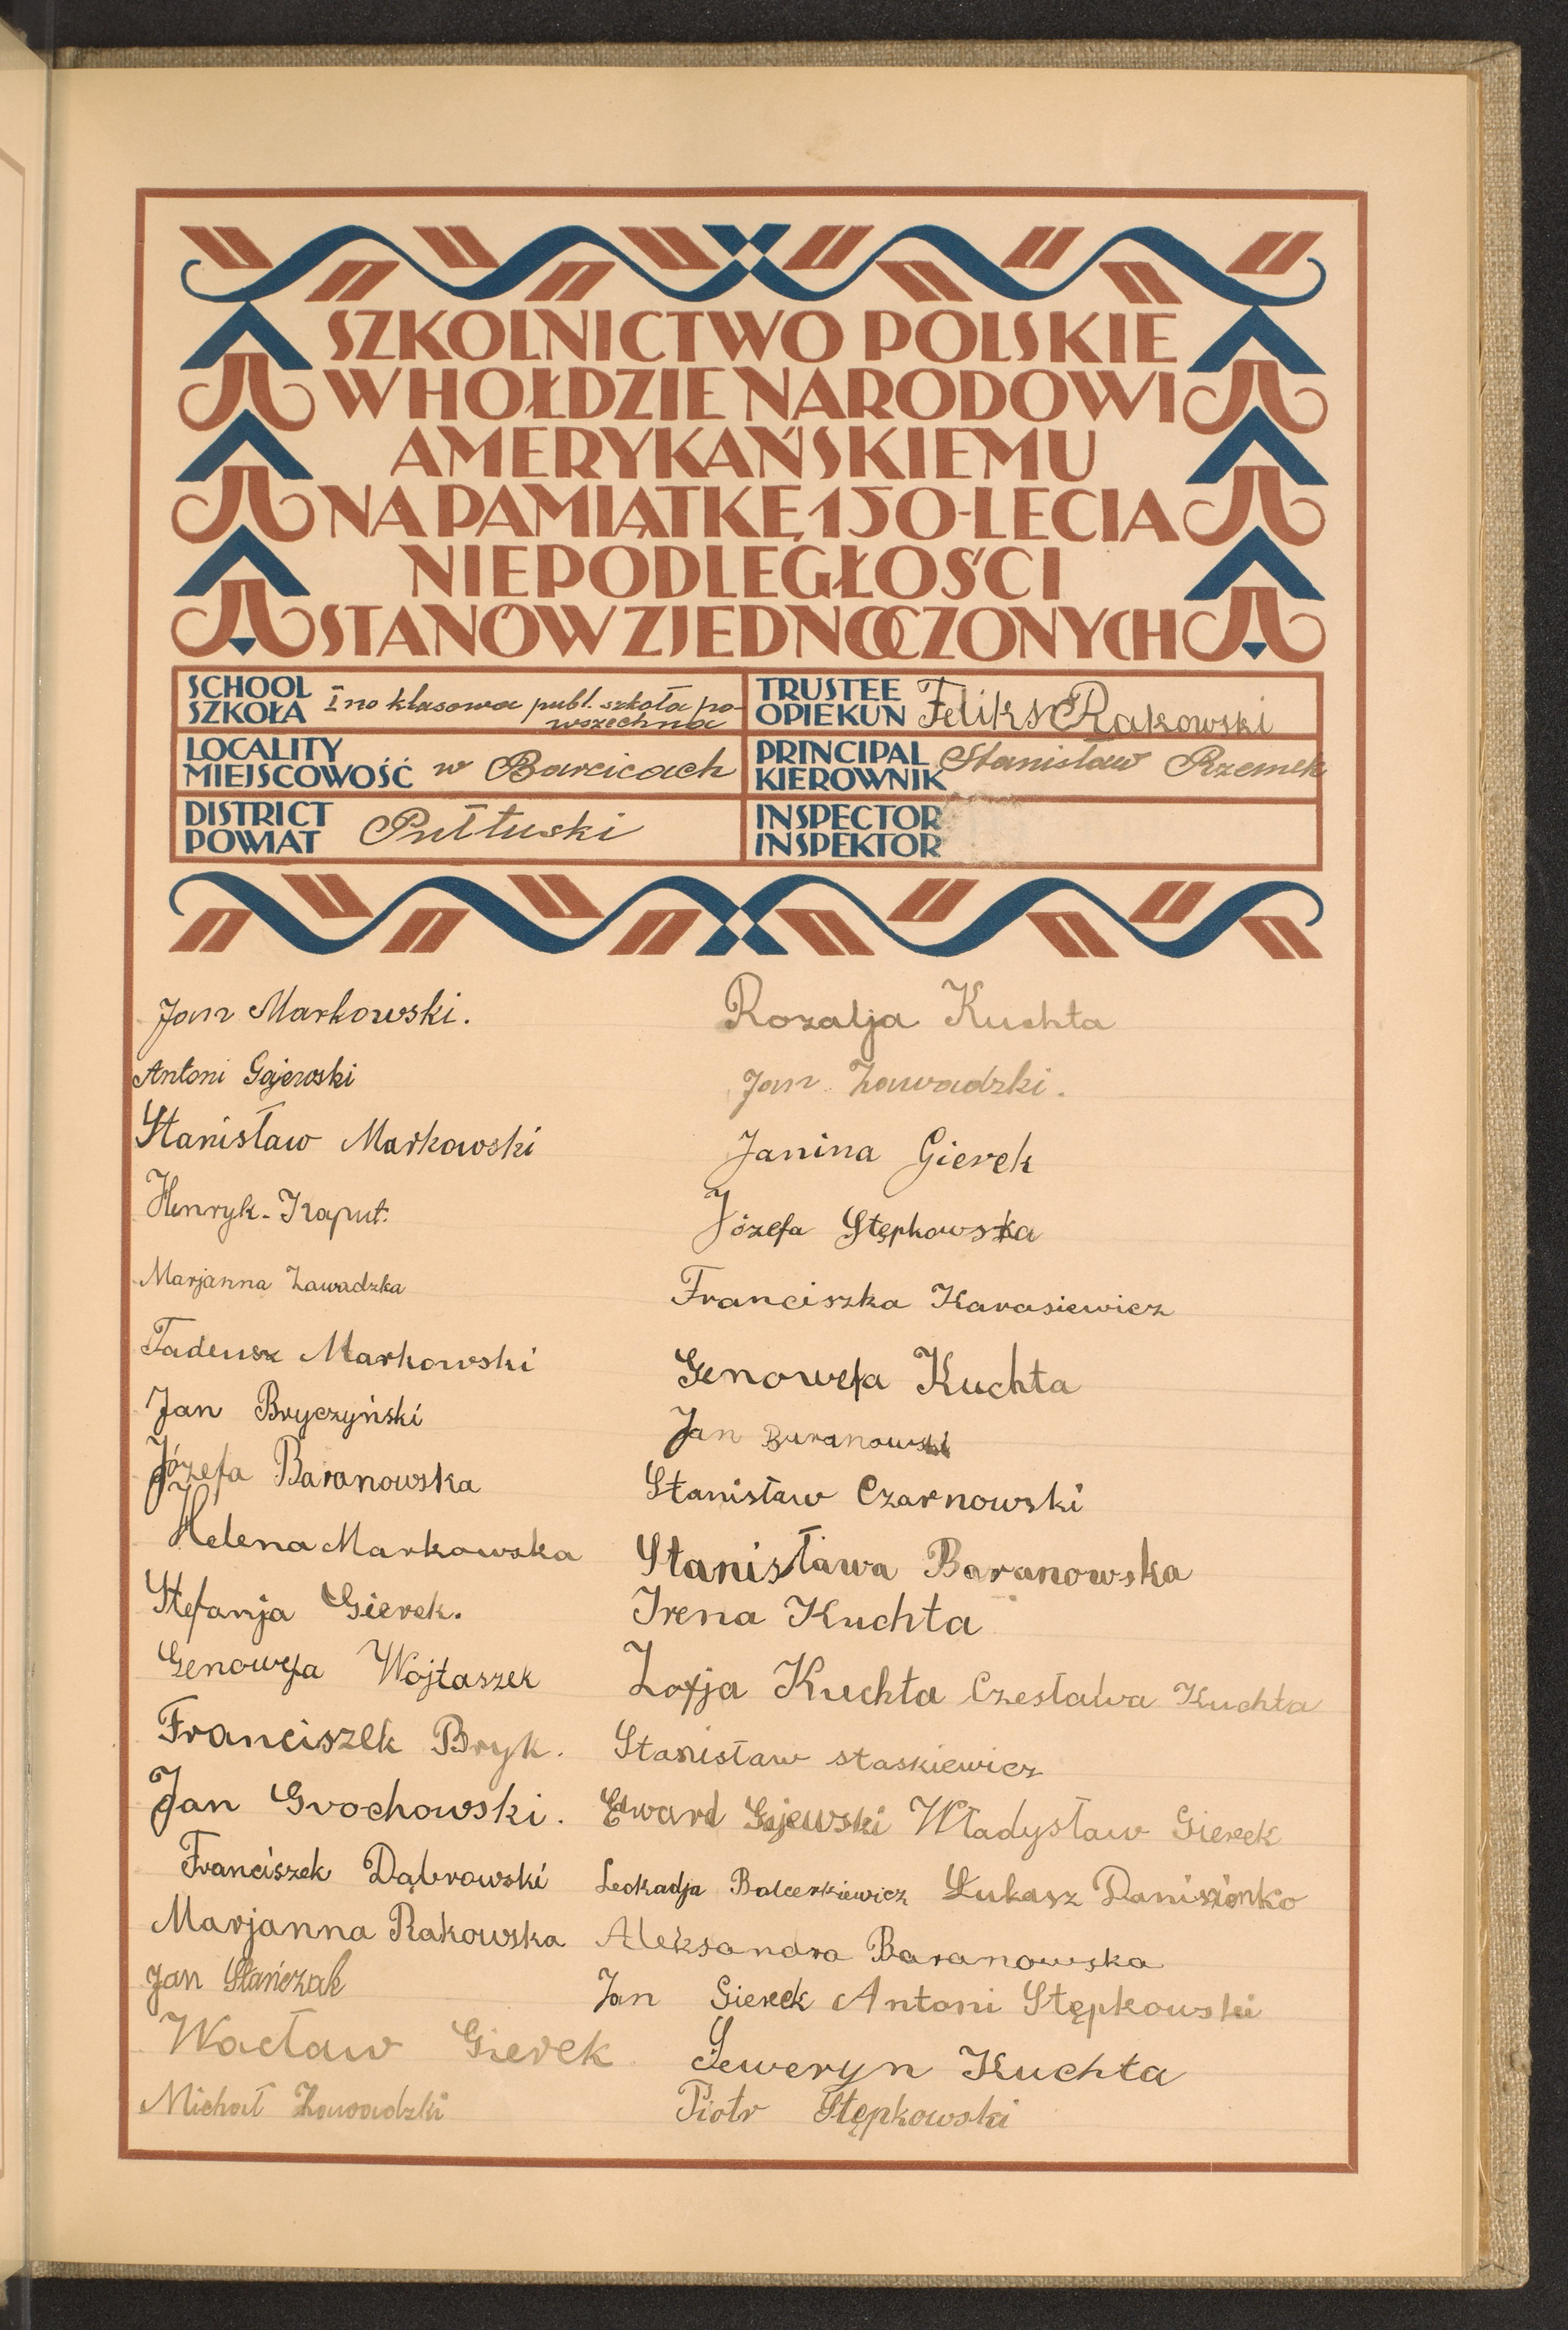 SZKOLNICTWO POLSKIE
W HOŁDZIE NARODOWI
AMERYKAŃSKIEMU
NA PAMIĄTKĘ 150-LECIA
NIEPODLEGŁOŚCI
STANÓW ZJEDNOCZONYCH
SCHOOL
SZKOŁA
I no klasowa publ. szkoła po-
wszechna
TRUSTEE
OPIEKUN
Feliks Rakowski
LOCALITY
MIEJSCOWOŚĆ
w Barcicach
PRINCIPAL
KIEROWNIK
Stanisław Rzemek
DISTRICT
POWIAT
Pułtuski
INSPECTOR
INSPEKTOR
Jan Markowski.
Antoni Gajewski
Stanisław Markowski
Henryk-Kaput.
Marjanna Zawadzka
Tadeusz Markowski
Jan Bryczyński
Józefa Baranowska
Helena Markowska
Stefanja Gierek.
Genowefa Wojtaszek
Franciszek Bryk.
Jan Grochowski.
Franciszek Dąbrowski
Marjanna Rakowska
Jan Stańczak
Wacław Gierek
Michał Zawadzki
Rozalja Kuchta
Jan Zawadzki.
Janina Gierek
Józefa Stępkowska
Franciszka Karasiewicz
Genowefa Kuchta
Jan Baranowski
Stanisław Czarnowski
Stanisława Baranowska
Irena Kuchta
Zofja Kuchta Czesława Kuchta
Stanisław staskiewicz
Edward Gajewski Władysław Gierek
Leokadja Balcerkiewicz Łukasz Daniszonko
Aleksandra Baranowska
Jan Gierek Antoni Stępkowski
Seweryn Kuchta
Piotr Stępkowski